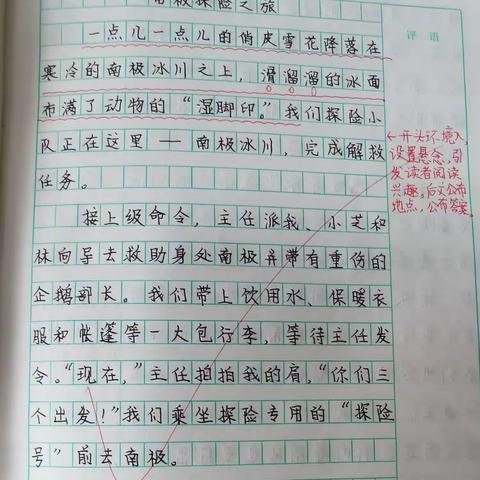 南极探险之旅
一点儿一点儿的俏皮雪花降落在
寒冷的南极冰川之上，滑溜溜的冰面
布满了动物的“湿脚印。”我们探险小
队正在这里——南极冰川，完成解救
任务。
接上级命令，主任派我、小芝和
林向导去救助身处南极并带有重伤的
企鹅部长。我们带上饮用水、保暖衣
服和帐蓬等一大包行李，等待主任发
令。“现在，”主任拍拍我的肩，“你们三
个出发！”我们乘坐探险专用的“探险
号”前去南极。
评语
←开头环境入，
设置悬念，引
发读者阅读
兴趣。后文公布
地点，公布答案。